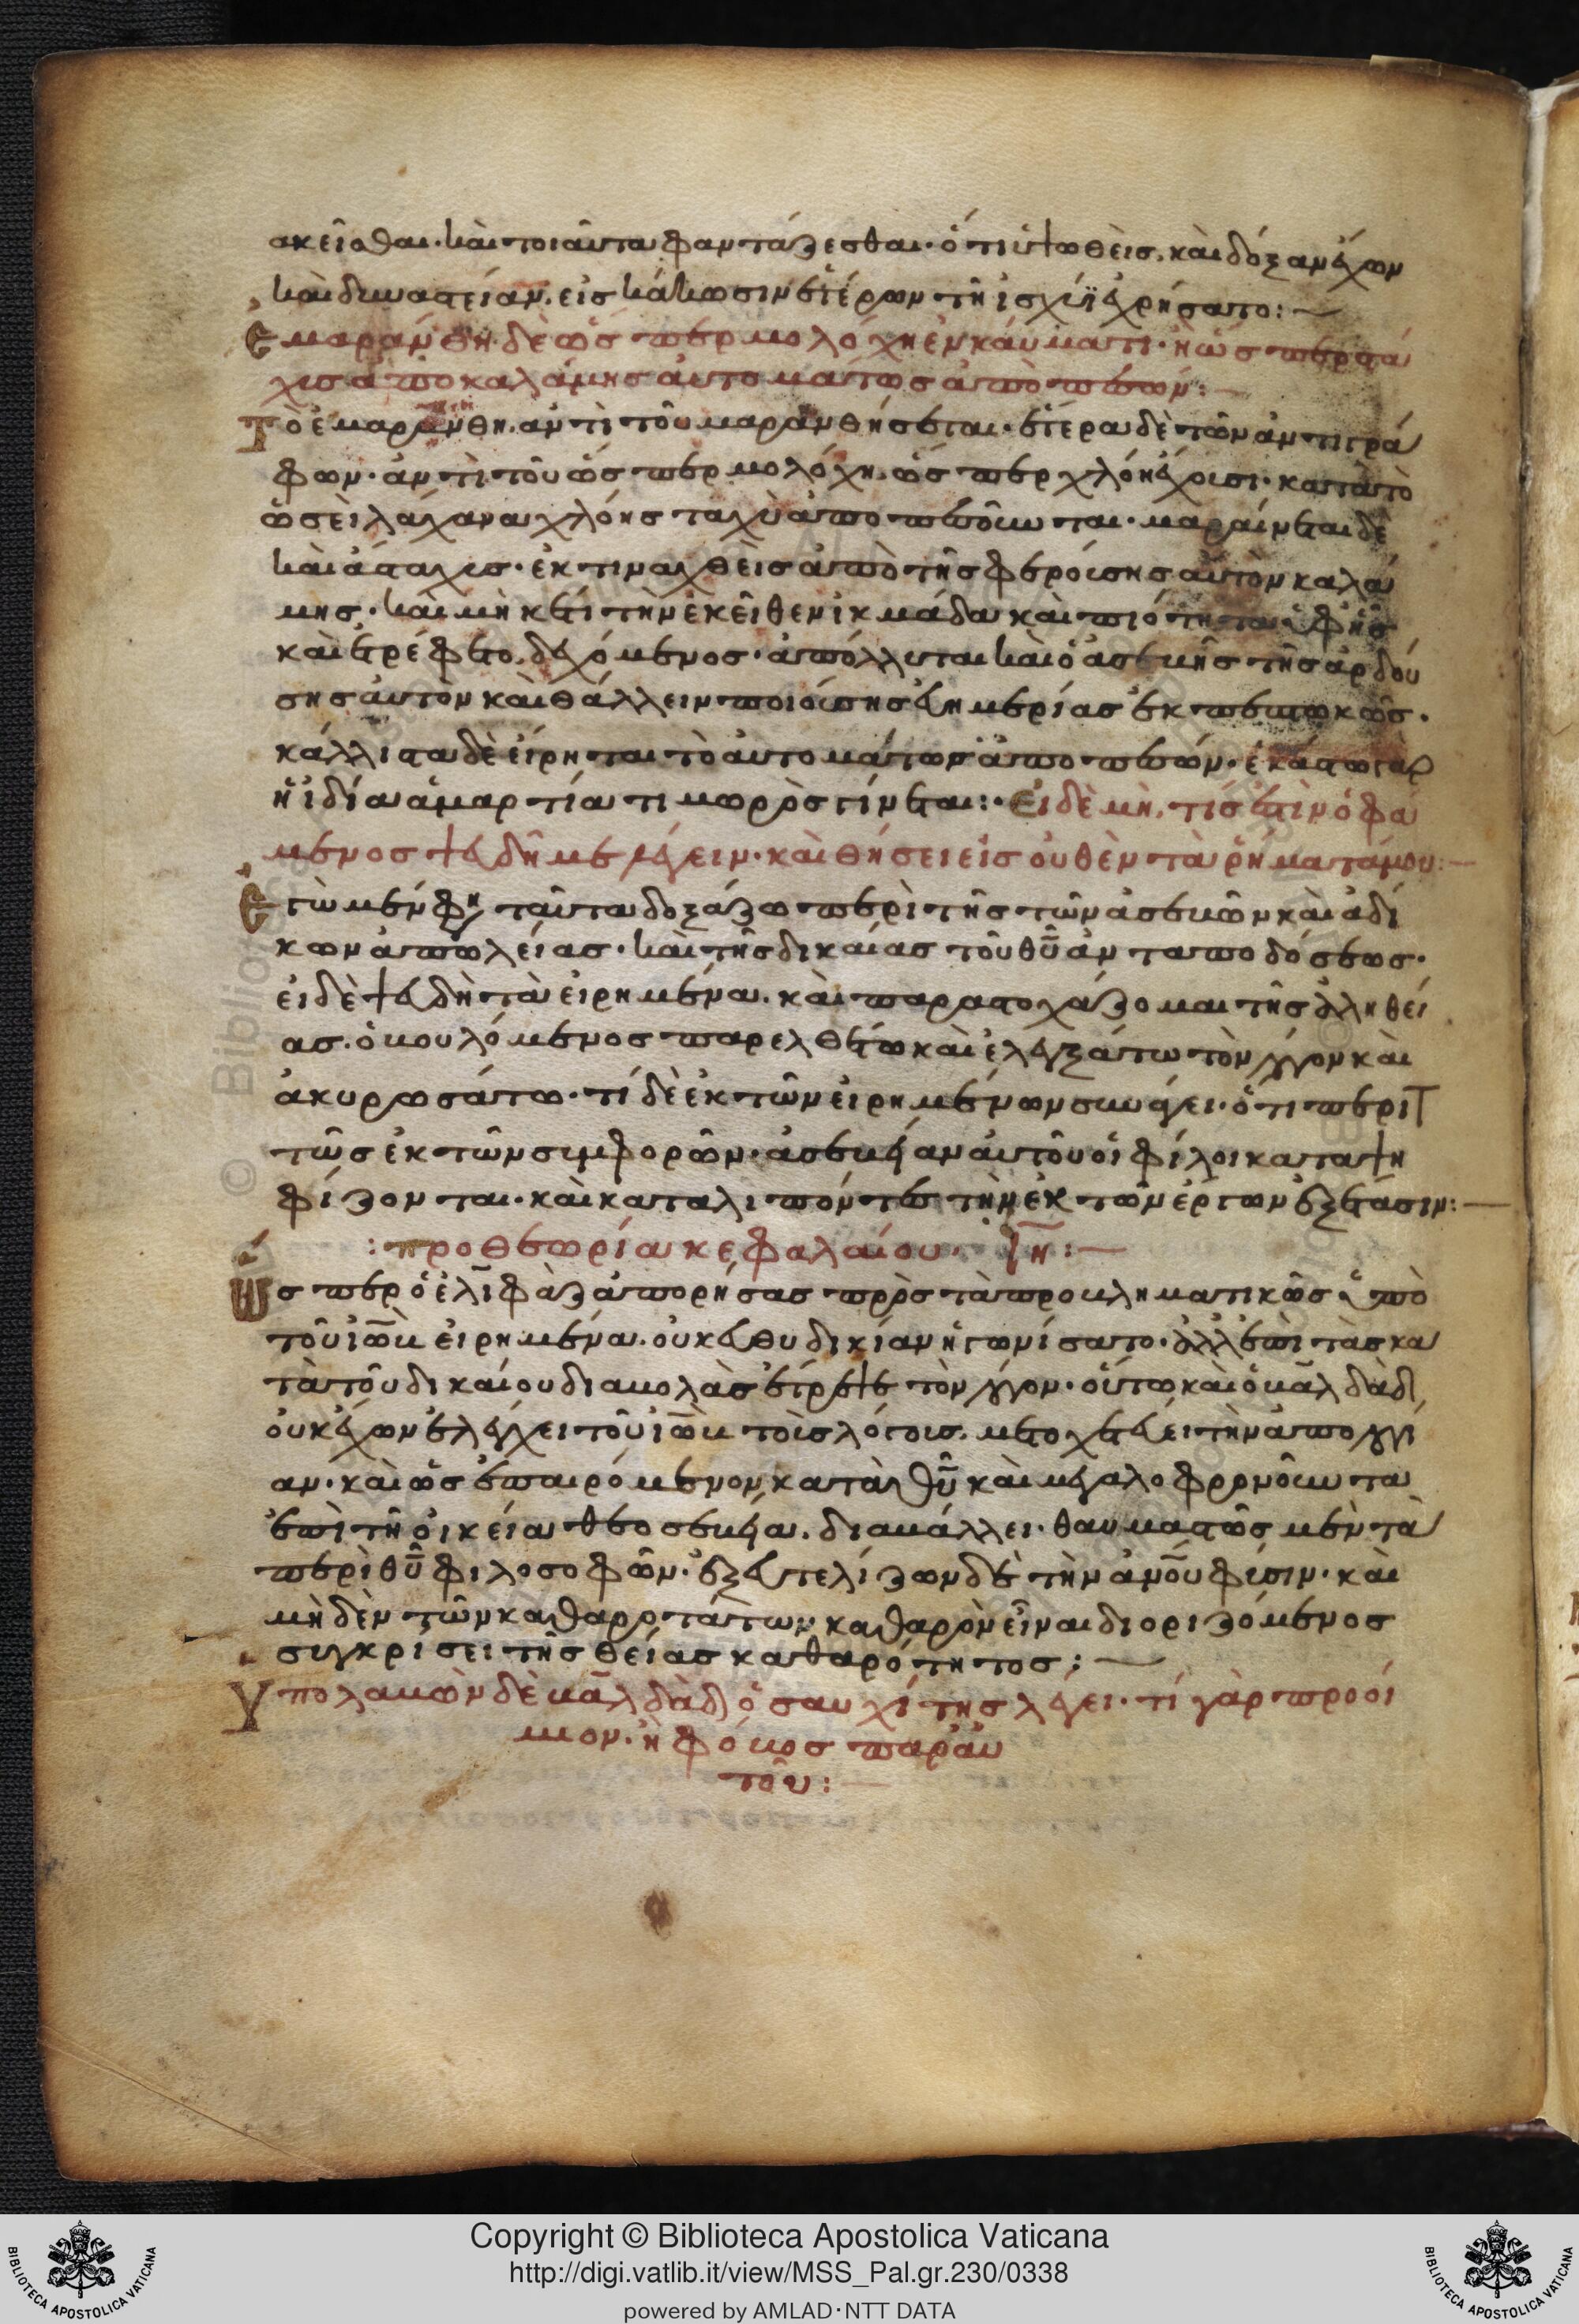 ακεῖσθαι· καὶ τοιαῦτα φαντάζεσθαι· ὅτι ὑψωθεὶς. καὶ δόξαν ἔχων
καὶ δυναστείαν, εἰς κάκωσιν ἑτέρων τῆ ἰσχύϊ ἐχρήσατο: —
Ἐμαράνθη δὲ ὥσπερ μολόχη ἐν καύματι· ἢ ὥσπερ στά
χυς ἀπο καλάμης αὐτοματως ἀπὸ πεσών: —
Τὸ ἐμαράνθη, αντὶ τοῦ μαρανθήσεται· ἕτερα δὲ τῶν ἀντιγρά
φων· ἀντὶ τοῦ ὥσπερ μολόχη, ὥσπερ χλόη ἔχουσι· κατὰ τὸ
ὡσεὶ λάχανα χλόης ταχὺ ἀποπεσοῦνται· μαραίνεται δὲ
καὶ ἄσταχυς· ἐκτιναχθεὶς ἀπὸ τῆς φερούσης αὐτὸν καλά
μης· καὶ μηκέτι τὴν ἐκεῖθεν ἰκμάδα καὶ πιότητα ὑφ' ἧς
καὶ ἐτρέφετο, δεχόμενος· ἀπόλλυται καὶ ὁ ἀσεβὴς τῆς ἀρδού
σης αὐτὸν καὶ θάλλειν ποιούσης εὐημερίας ἐκπεπτωκώς·
κάλλιστα δὲ εἴρηται τὸ αὐτομάτως ἀποπεσών· ἑκάστω γὰρ
ἡ ἰδία ἁμαρτία τιμωρὸς γίνεται:· Εἰ δὲ μὴ, τίς ἐστὶν ὁ φά
μενος ψευδῆ με λέγειν· καὶ θήσει εἰς οὐθὲν τὰ ῥήματά μου: —
Ἐγὼ μέν φη, ταῦτα δοξάζω περὶ τῆς τῶν ἀσεβῶν καὶ ἀδί
κων ἀπωλείας· καὶ τῆς δικαίας τοῦ θῦ ἀνταποδόσεως·
εἰ δὲ ψευδῆ τὰ εἰρημένα. καὶ παραστοχάζομαι τῆς ἀληθεί
ας. ὁ βουλόμενος παρελθέτω καὶ ἐλεγξάτω τὸν λόγον καὶ
ἀκυρωσάτω· τί δὲ ἐκ τῶν εἰρημένων συνάγει· ὅτι περιτ
τῶς ἐκ τῶν συμφορῶν· ἀσέβειαν αὐτοῦ οἱ φίλοι καταψη
φίζονται· καὶ καταλιπόντες τὴν ἐκ τῶν ἔργων ἐξέτασιν: —
: προθεωρία κεφαλαίου· ιη: —
Ὥσπερ ὁ ἐλιφὰζ ἀπορήσας πρὸς τὰ προβληματικῶς ὑπὸ
τοῦ ἰὼβ εἰρημένα. οὐκ εὐθυδικίαν ἠγωνίσατο· ἀλλ' ἐπὶ τὰς κα
τὰ τοῦ δικαίου διαβολὰς ἔτρεψε τὸν λόγον· οὕτω καὶ ὁ βαλδὰδ,
οὐκ ἔχων ἐλέγχει τοῦ ἰὼβ τοῖς λόγοις. μετοχετεύει τὴν ἀπολογί
αν· καὶ ὡς ἐπαιρόμενον κατὰ θῦ καὶ μεγαλοφρονοῦντα
ἐπὶ τῆ οἰκεία θεοσεβεία. διαβάλλει· θαυμαστῶς μὲν τὰ
περὶ θῦ φιλοσοφῶν· ἐξευτελίζων δὲ τὴν ἀνοῦ φύσιν· καὶ
μηδὲν τῶν καθαροτάτων, καθαρὸν εἶναι διοριζόμενος
συγκρίσει τῆς θείας καθαρότητος: —
Ὑπολαβὼν δὲ βαλδὰδ ὁ σαυχίτης λέγει· τί γὰρ προοί
μιον· ἢ φόβος παρ' αὐ
τοῦ: —